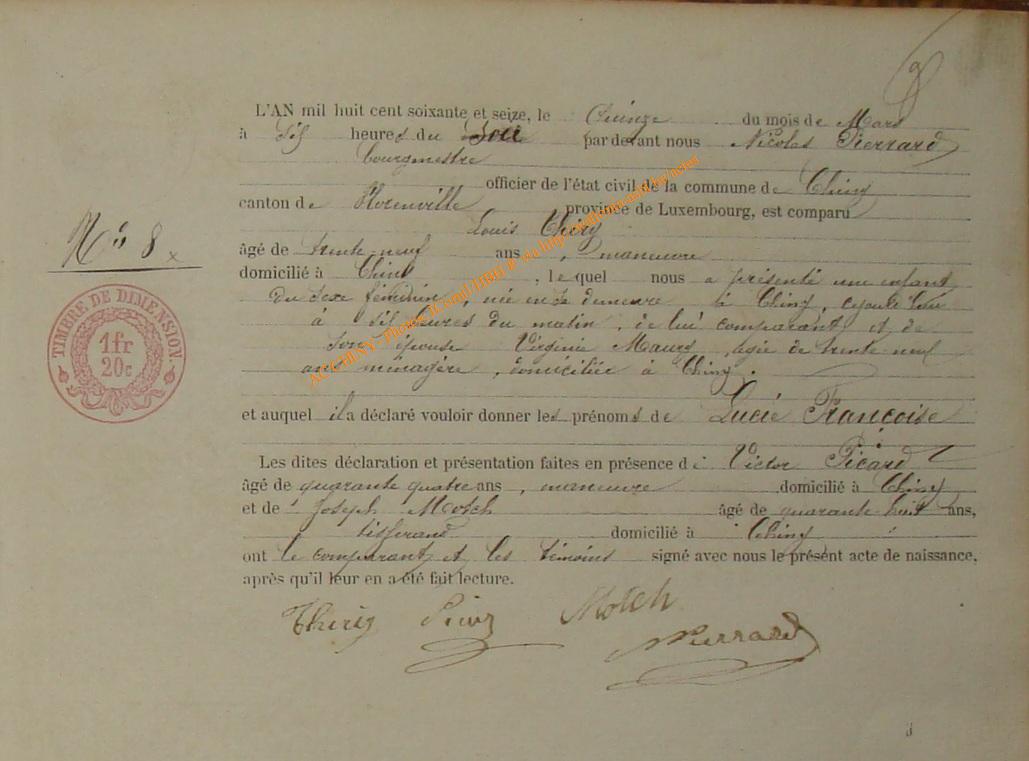 L'AN mil huit cent soixante et seize, le Quinze du mois de Mars
à six heures du Soir par devant nous Nicolas Pierrard
bourgmestre
officier de l'état civil de la commune de Chiny
canton de Florenville province de Luxembourg, est comparu
Louis Thiry
Nº 8
âgé de trente-neuf ans, manœuvre
domicilié à Chiny, lequel nous a présenté une enfant
du sexe féminin, née en sa demeure à Chiny, ce jour
à six heures du matin, de lui comparant et de
son épouse Virginie Maury, agée de trente neuf
ans ménagère, domiciliée à Chiny.
TIMBRE DE DIMENSION
1fr
20c
et auquel il a déclaré vouloir donner les prénoms de Lucie Françoise
Les dites déclaration et présentation faites en présence de Victor Picard
âgé de quarante quatre ans, manœuvre domicilié à Chiny
et de Joseph Motch âgé de quarante huit ans,
tisserand domicilié à Chiny
ont le comparant et les témoins signé avec nous le présent acte de naissance,
après qu'il leur en a été fait lecture.
Thiry Motch
NPierrard